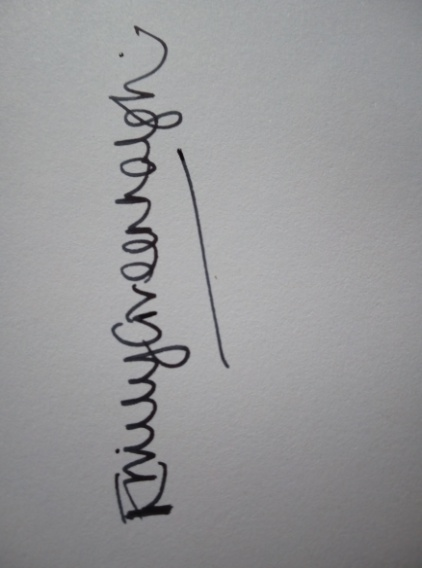 Emily Greenhalgh